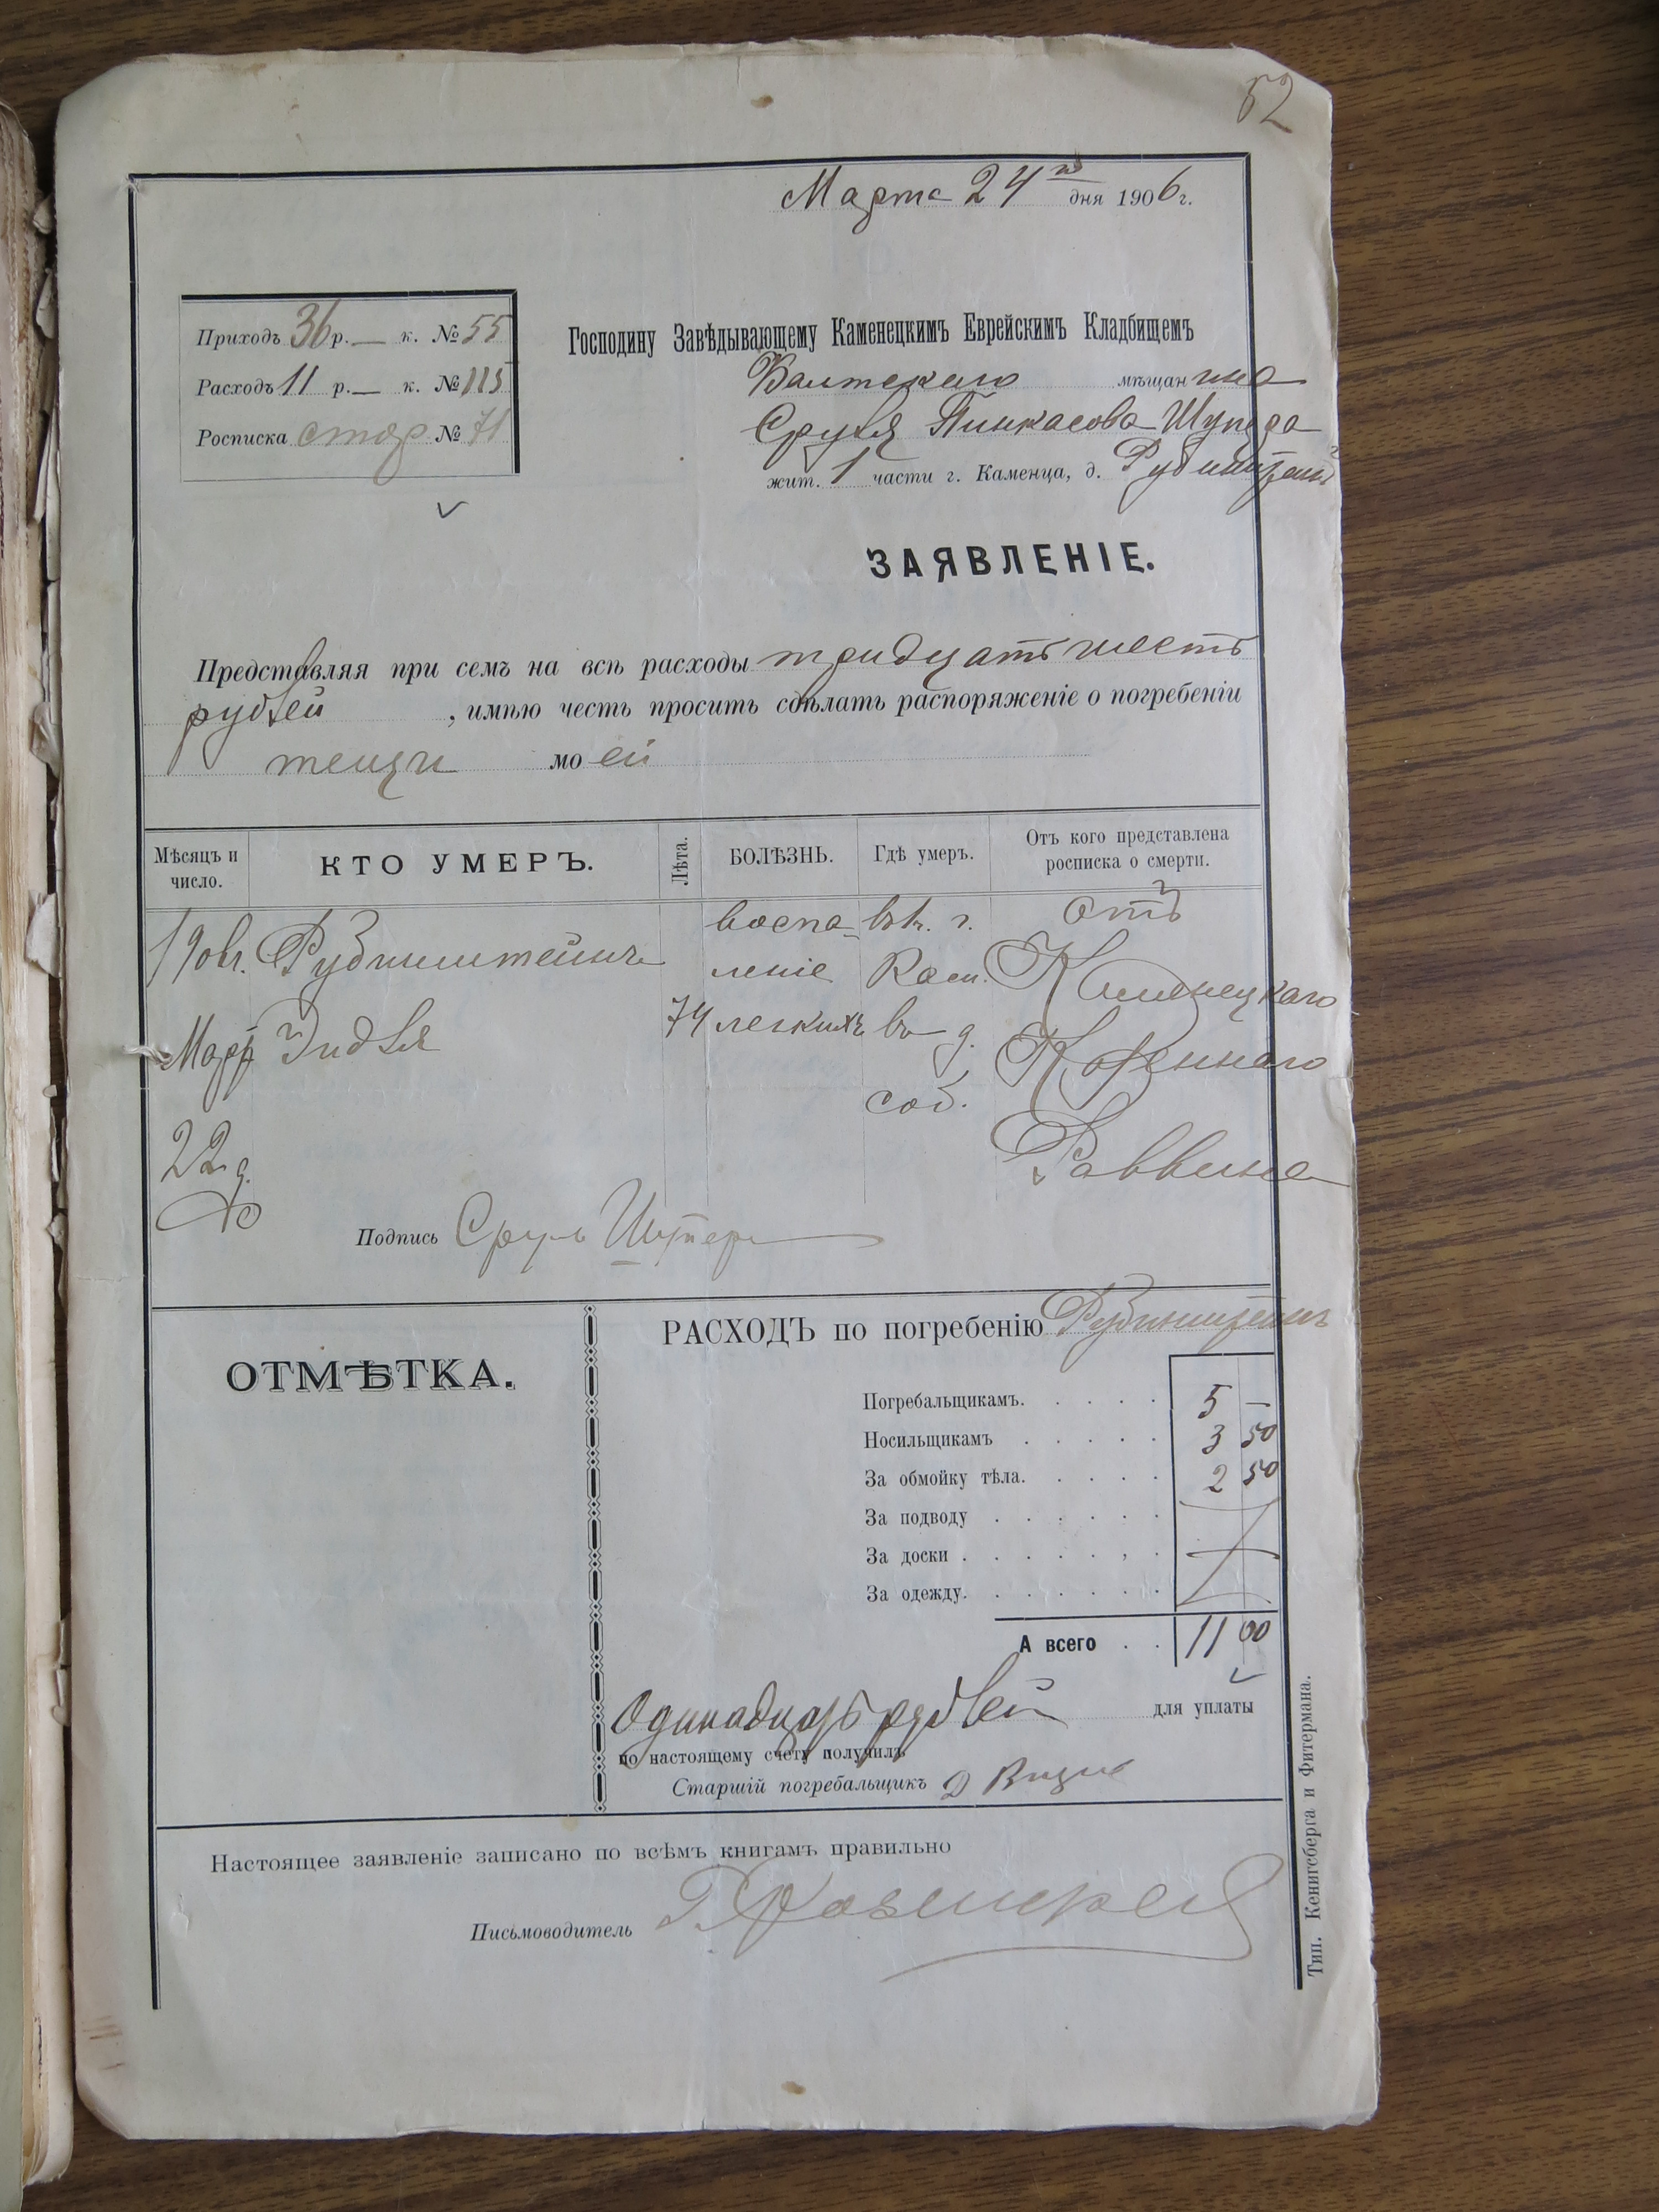 52
Марта 24го дня 1906 г.
Приходъ 36 р. — к. № 55
Расходъ 11 р. — к. № 115
Росписка стар № 71
Господину Завѣдывающему Каменецкимъ Еврейскимъ Кладбищемъ
мѣщанина
Сруля Пинкасова Шупера
жит. 1 части г. Каменца, д.
ЗАЯВЛЕНІЕ.
Представляя при семъ на всѣ расходы тридцать шесть
рублей , имѣю честь просить сдѣлать распоряженіе о погребеніи
тещи моей
Мѣсяцъ и число.
КТО УМЕРЪ.
Лѣта.
БОЛѢЗНЬ.
Гдѣ умеръ.
Отъ кого представлена росписка о смерти.
190 г. Рубинштейнъ воспа- въ г. Отъ
леніе Кам. Каменецкаго
Мар Эидля 74 легкихъ въ д. Казеннаго
соб.
22 д. Раввина
Подпись Сруль Шупер
ОТМѢТКА.
РАСХОДЪ по погребенію Рубинштейнъ
Погребальщикамъ. 5 —
Носильщикамъ 3 50
За обмойку тѣла. 2 50
За подводу
За доски
За одежду.
А всего 11 00
Одинадцать рублей для уплаты
по настоящему счету получилъ
Старшій погребальщикъ Д
Настоящее заявленіе записано по всѣмъ книгамъ правильно
Письмоводитель
Тип. Кенигсберга и Фитермана.